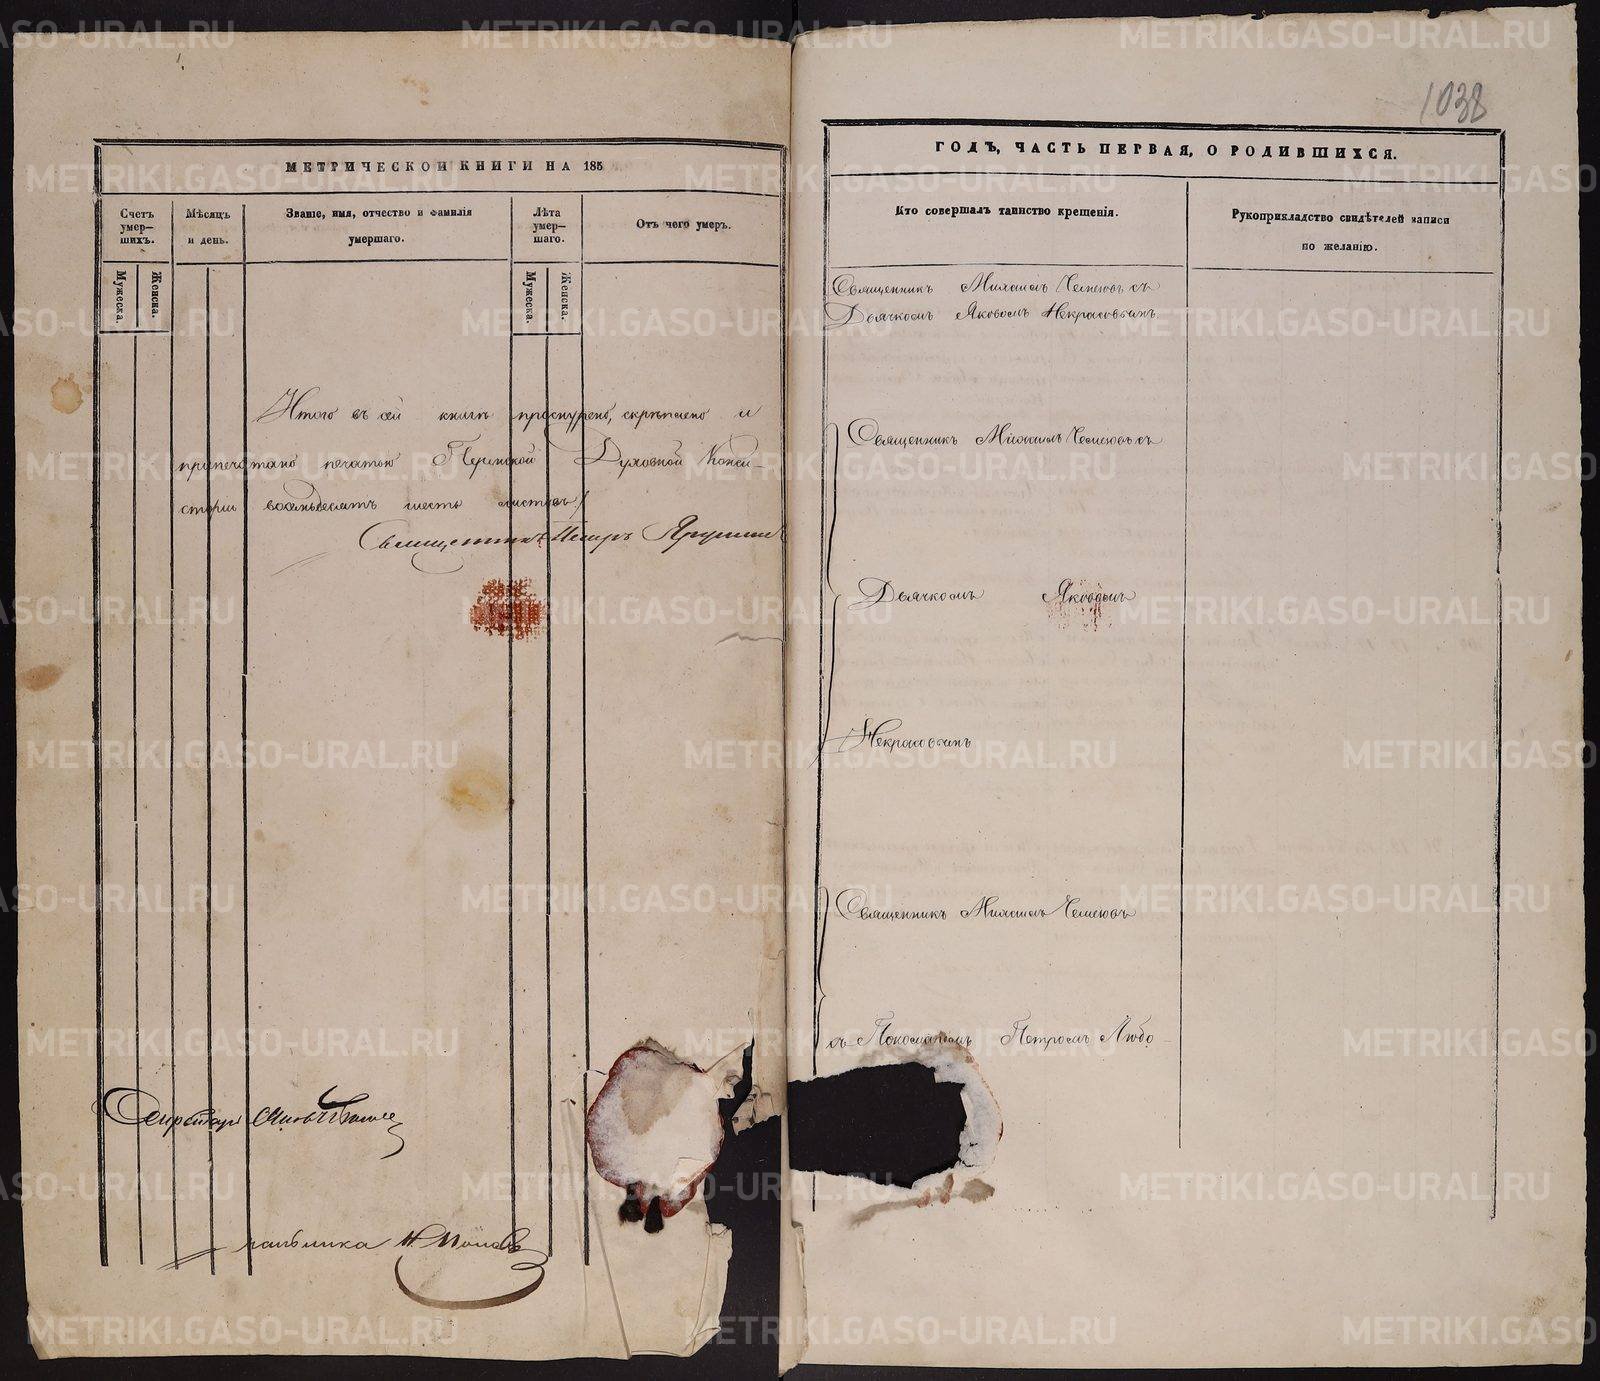 МЕТРИЧЕСКОЙ КНИГИ НА 185
Счетъ умер—шихъ.
Мѣсяцъ и день.
Званіе, имя, отчество и фамилія умершаго.
Лѣта умер—шаго.
Отъ чего умеръ.
Мужеска.
Женска.
Мужеска.
Женска.
Итого въ сей книгѣ прошнурено, скрѣплено и
припечатано печатью Пермской Духовной Конси-
сторіи восемьдесятъ шесть листовъ.
Священникъ Петръ
Секретарь
1038
ГОДЪ, ЧАСТЬ ПЕРВАЯ, О РОДИВШИХСЯ.
Кто совершалъ таинство крещенія.
Рукоприкладство свидѣтелей записи
по желанію.
Священникъ Михаилъ съ
Дьячкомъ Яковомъ Некрасовымъ
Священникъ Михаилъ съ
Дьячкомъ Яковомъ
Некрасовымъ
Священникъ Михаилъ
съ Пономаремъ Петромъ Любо-
METRIKI.GASO-URAL.RU